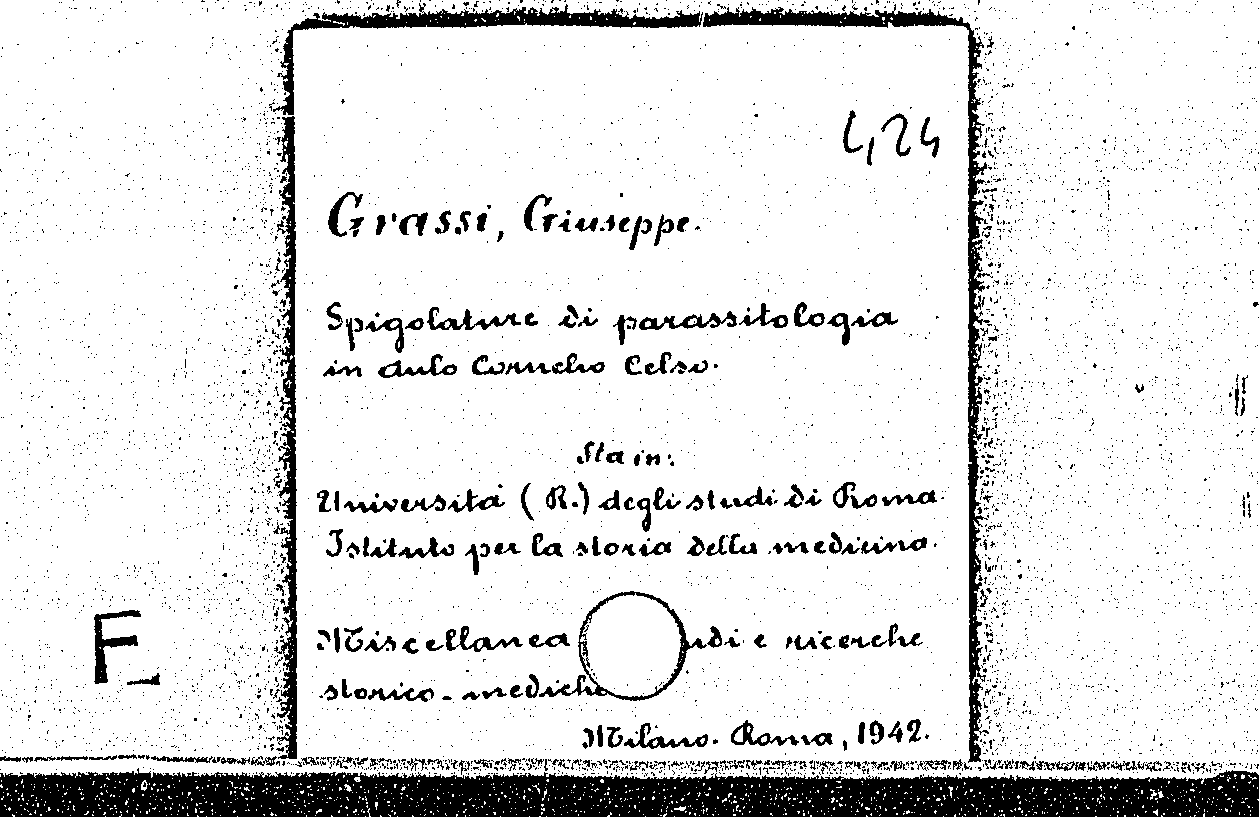 4,24
Grassi, Giuseppe.
Spigolature di parassitologia
in Aulo Cornelio Celso.
Sta in:
Università (R.) degli studi di Roma.
Istituto per la storia della medicina.
Miscellanea udi e ricerche
storico-mediche
Milano. Roma, 1942.
F